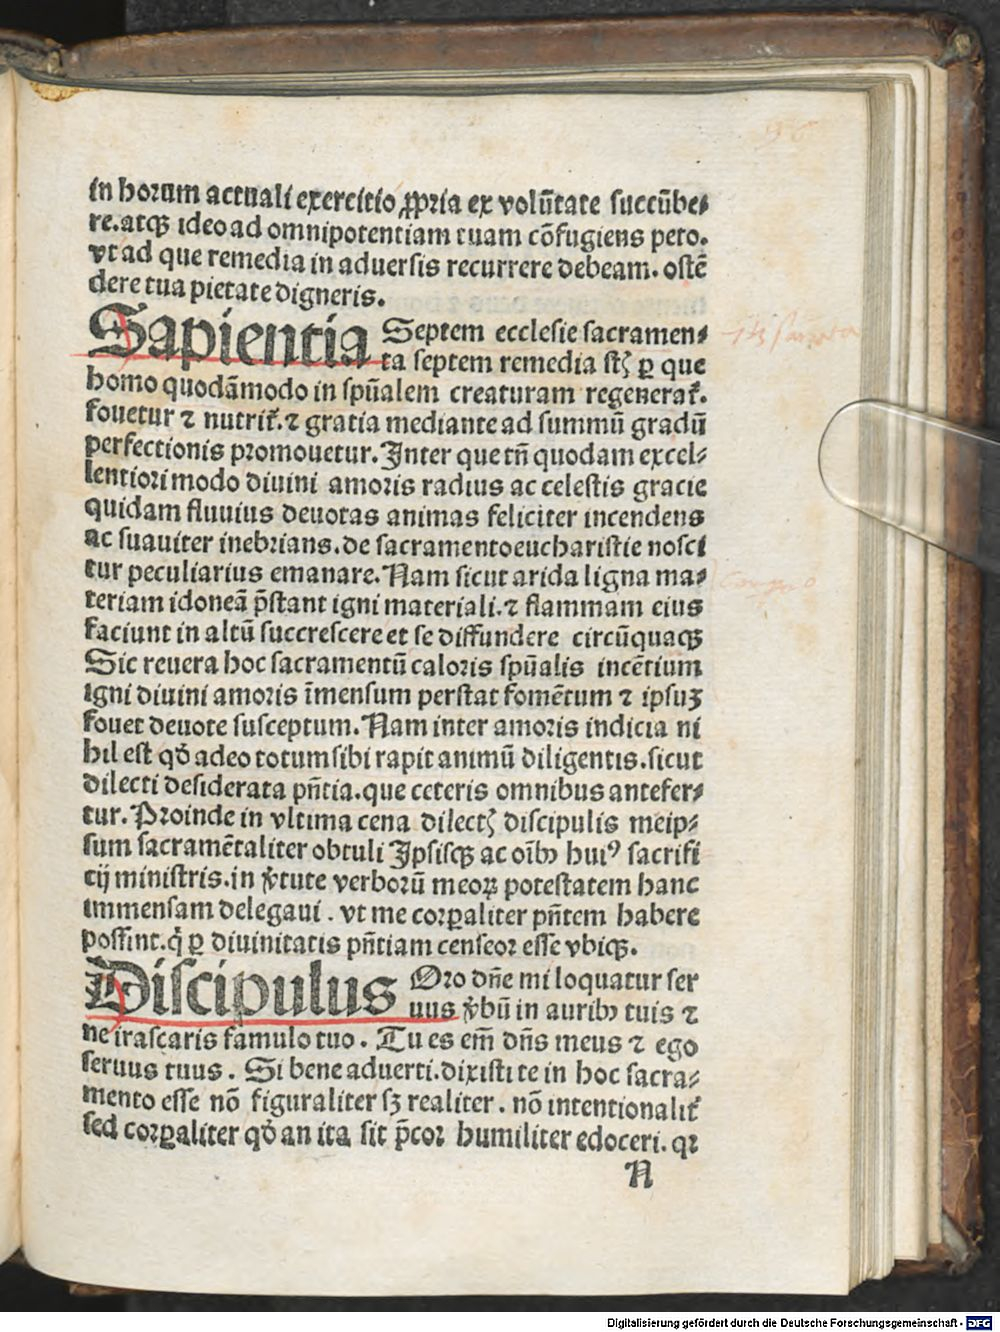 in horum actuali exercitio ꝓpria ex volūtate succūbe⸗
re. atqꝫ ideo ad omnipotentiam tuam cōfugiens peto.
vt ad que remedia in aduersis recurrere debeam. ostē
dere tua pietate digneris.
Sapientia Septem ecclesie sacramen⸗
ta septem remedia st ꝑ que
homo quodāmodo in spūalem creaturam regenerat̄.
fouetur ⁊ nutrit̄. ⁊ gratia mediante ad summū gradū
perfectionis promouetur. Inter que tn̄ quodam excel⸗
lentiori modo diuini amoris radius ac celestis gracie
quidam fluuius deuotas animas feliciter incendens
ac suauiter inebrians. de sacramento eucharistie nosci
tur peculiarius emanare. Nam sicut arida ligna ma⸗
teriam idoneā p̄stant igni materiali. ⁊ flammam eius
faciunt in altū succrescere et se diffundere circūquaqꝫ
Sic reuera hoc sacramentū caloris spūalis incētium
igni diuini amoris īmensum perstat fomētum ⁊ ipsuꝫ
fouet deuote susceptum. Nam inter amoris indicia ni
hil est qđ adeo totum sibi rapit animū diligentis. sicut
dilecti desiderata pn̄tia. que ceteris omnibus antefer⸗
tur. Proinde in vltima cena dilect discipulis meip⸗
sum sacramētaliter obtuli Ipsisqꝫ ac oīb huiꝰ sacrifi
cij ministris. in v̄tute verborū meoꝝ potestatem hanc
immensam delegaui. vt me corꝑaliter pn̄tem habere
possint. q̇ ꝑ diuinitatis pn̄tiam censeor esse vbiqꝫ.
Discipulus Oro dn̄e mi loquatur ser
uus v̄bū in aurib tuis ⁊
ne irascaris famulo tuo. Tu es em̄ dn̄s meus ⁊ ego
seruus tuus. Si bene aduerti. dixisti te in hoc sacra⸗
mento esse nō figuraliter sꝫ realiter. nō intentionalit̄
sed corꝑaliter qđ an ita sit p̄cor humiliter edoceri. qꝛ
N
Digitalisierung gefördert durch die Deutsche Forschungsgemeinschaft - DFG